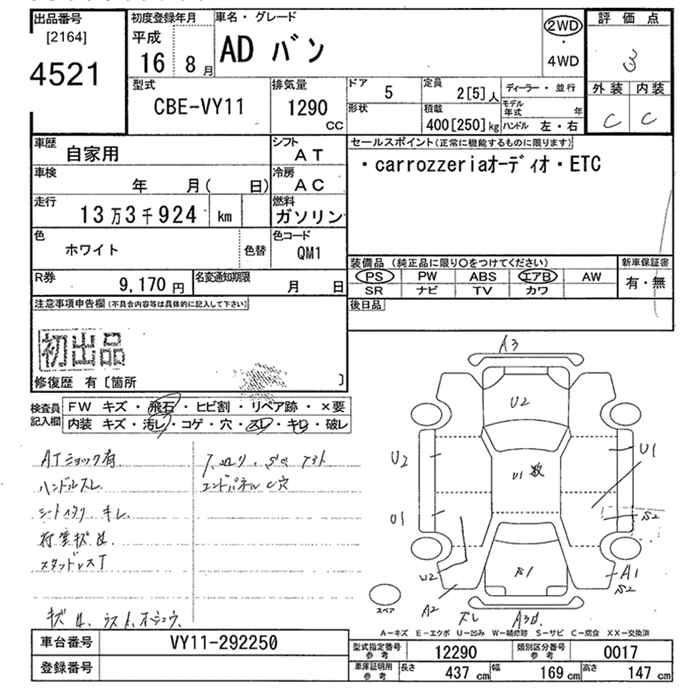 出品番号
[2164]
4521
初度登録年月
平成
16 8月
車名・グレード
AD バン
2WD
・
4WD
評価点
3
外装 内装
C C
型式
CBE-VY11
排気量
1290
CC
ドア
5
形状
定員
2[5]人
積載
400[250]kg
ディーラー・並行
モデル年式 年
ハンドル 左・右
車歴
自家用
シフト
AT
車検
年 月( 日)
冷房
AC
走行
13万3千924 km
燃料
ガソリン
色
ホワイト
色替
色コード
QM1
R券
9,170円
名変通知期限
月 日
セールスポイント(正常に機能するものに限ります)
・carrozzeriaオーディオ・ETC
装備品(純正品に限り○をつけてください)
PS PW ABS エアB AW
SR ナビ TV カワ
新車保証書
有・無
後日品
注意事項申告欄(不具合内容等は具体的に記入して下さい)
初出品
修復歴 有〔箇所 〕
検査員記入欄
FW キズ・飛石・ヒビ割・リペア跡・×要
内装 キズ・汚レ・コゲ・穴・スレ・キレ・破レ
ATショック有
ハンドルスレ
シートイタミ キレ
スタッドレスT
エンドパネルU穴
A3
U2
U2
U1
U1 数
U1
S2
U2
A2
A1
S2
スペア
A-キズ E-エクボ U-凹み W-補修跡 S-サビ C-腐食 XX-交換済
車台番号
VY11-292250
登録番号
型式指定番号 参考
12290
類別区分番号 参考
0017
車庫証明用 参考
長さ 437 cm
幅 169 cm
高さ 147 cm